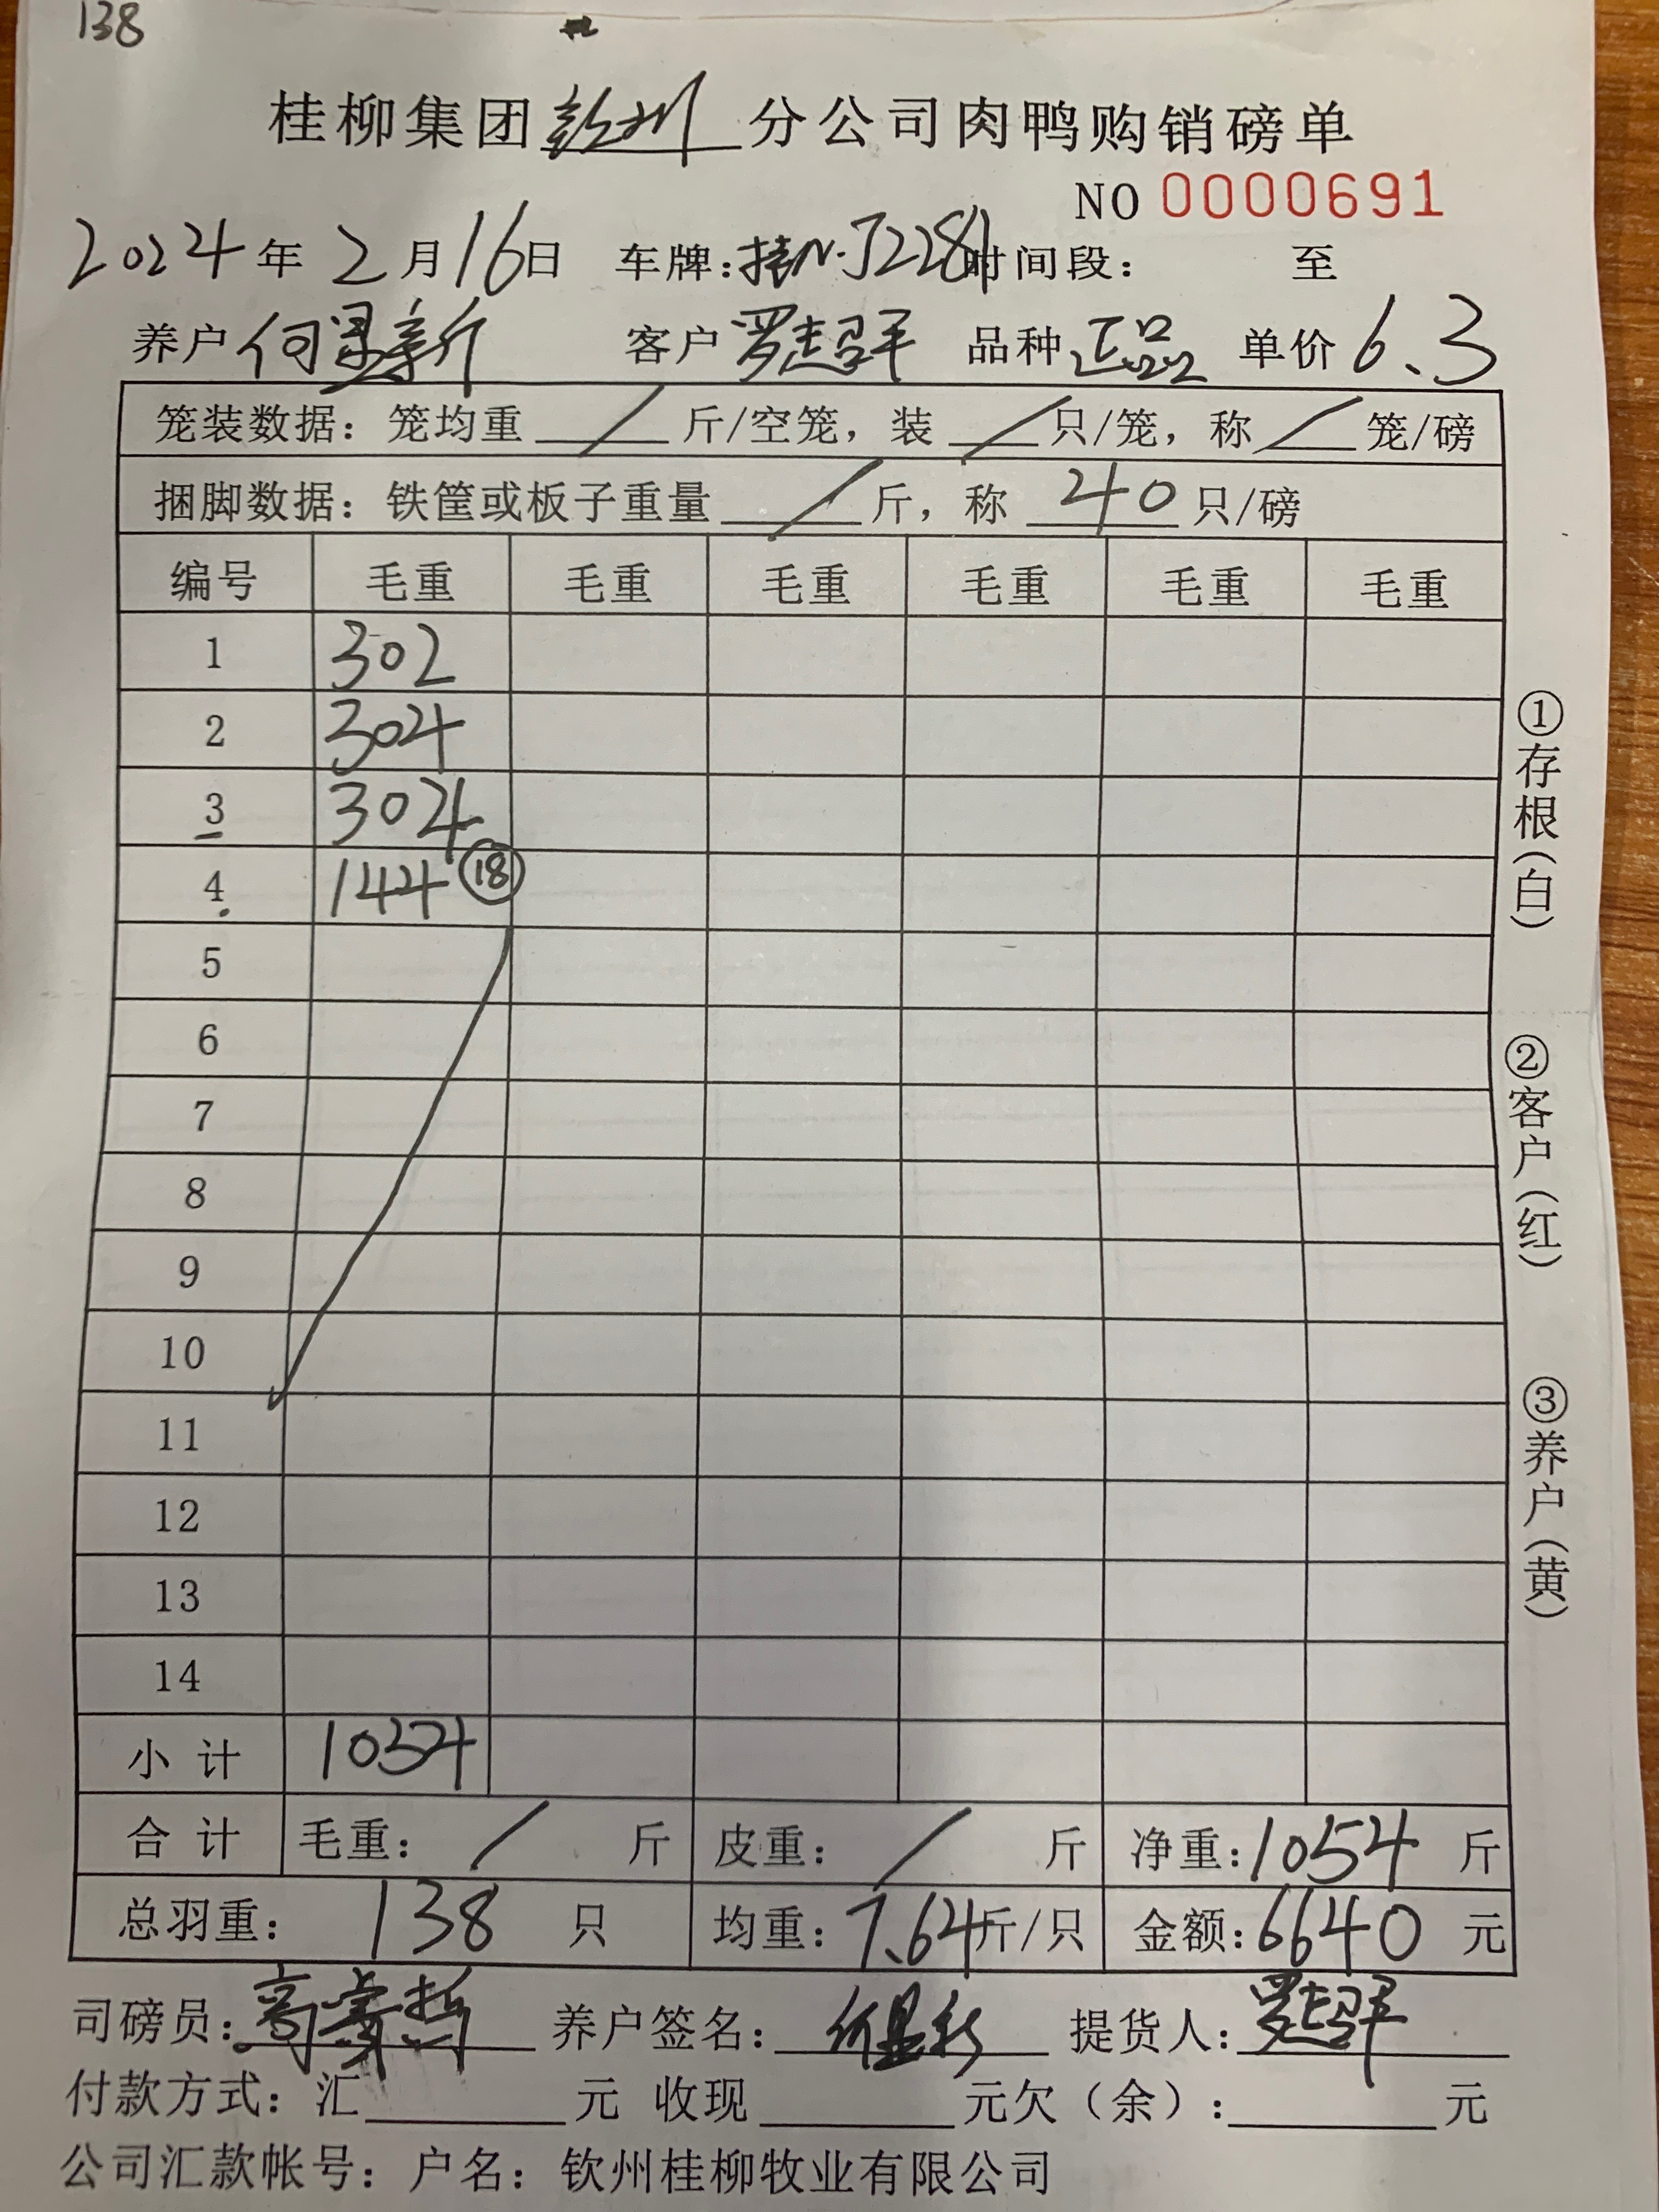 138
桂柳集团钦州分公司肉鸭购销磅单
NO 0000691
2024年2月16日 车牌:桂N·J2281 时间段: 至
养户 何显新 客户 罗志群 品种 正品 单价 6.3
笼装数据: 笼均重 / 斤/空笼, 装 / 只/笼, 称 / 笼/磅
捆脚数据: 铁筐或板子重量 / 斤, 称 40 只/磅
编号 毛重 毛重 毛重 毛重 毛重 毛重
1 302
2 304
3 304
4 144 ⑱
5
6
7
8
9
10
11
12
13
14
小计 1054
合计 毛重: / 斤 皮重: / 斤 净重:1054 斤
总羽重: 138 只 均重: 7.64斤/只 金额:6640 元
司磅员: 养户签名: 何显新 提货人: 罗志群
付款方式: 汇 元 收现 元欠(余): 元
公司汇款帐号: 户名: 钦州桂柳牧业有限公司
①存根(白)
②客户(红)
③养户(黄)